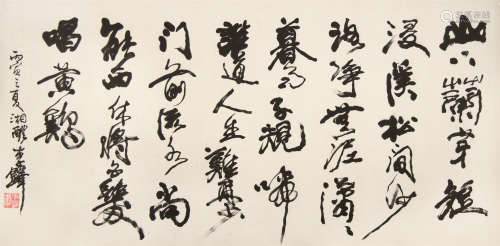 山下蘭芽短
浸溪松間沙
路淨無泥瀟〻
暮雨子規啼
誰道人生難再少
門前流水尚
能西休將白髮
唱黃雞
丙寅之夏湘醴李鐸